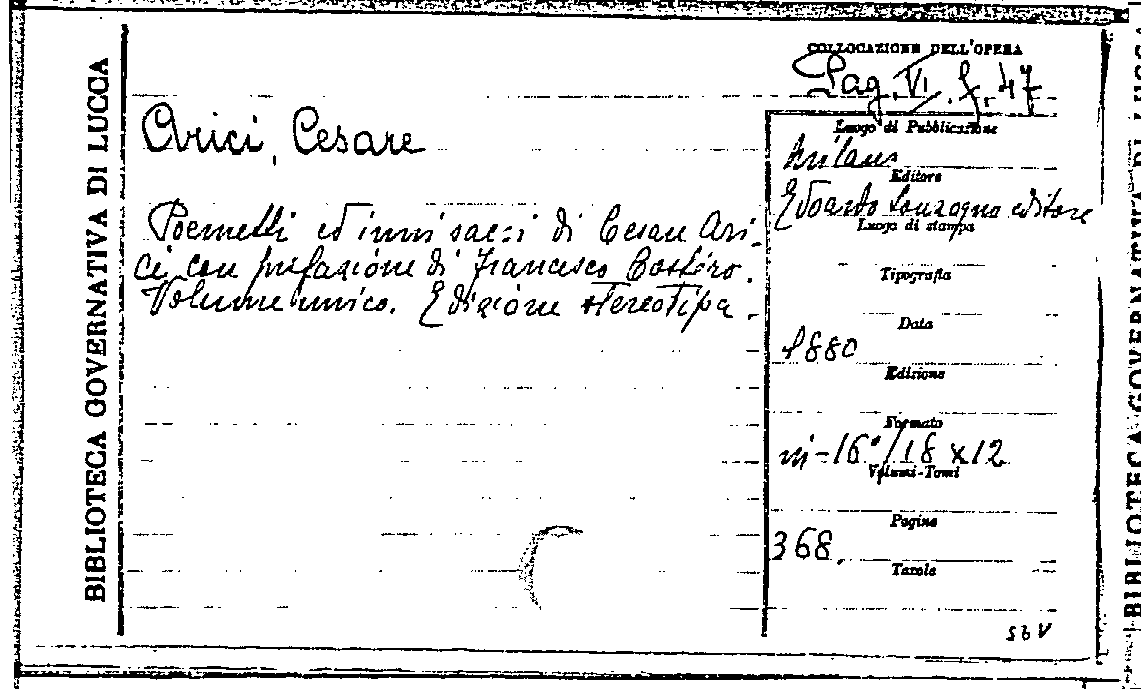 BIBLIOTECA GOVERNATIVA DI LUCCA
COLLOCAZIONE DELL'OPERA
Pag. VI. f. 47
Arici, Cesare
Poemetti ed inni sacri di Cesare Ari-
ci con prefazione di Francesco Costèro.
Volume unico. Edizione stereotipa.
Luogo di Pubblicazione
Milano
Editore
Edoardo Sonzogno editore
Luogo di stampa
Tipografia
Data
1880
Edizione
Formato
in-16°/18x12
Volumi-Tomi
Pagine
368.
Tavole
BIBLIOTECA GOVERNATIVA DI LUCCA